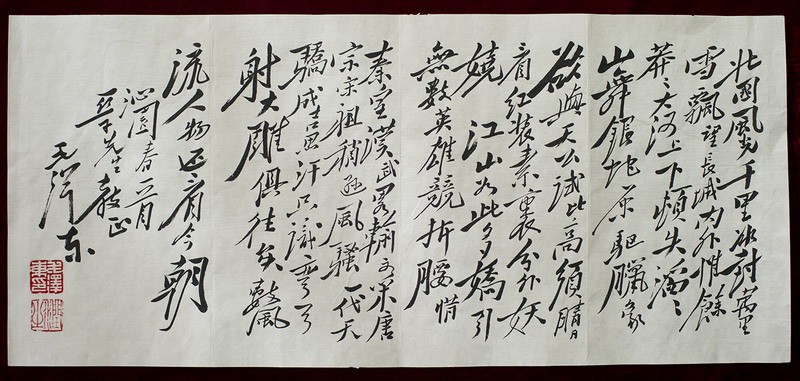 北国風光千里冰封萬里
雪飄望長城內外惟餘
莽〻大河上下頓失滔〻
山舞銀蛇原馳臘象
欲與天公試比高須晴日
看紅裝素裹分外妖
嬈 江山如此多嬌引
無數英雄競折腰惜
秦皇漢武略輸文采唐
宗宋祖稍遜風騷一代天
驕成吉思汗只識彎弓
射大雕俱往矣數風
流人物还看今朝
沁園春
先生教正
毛澤東